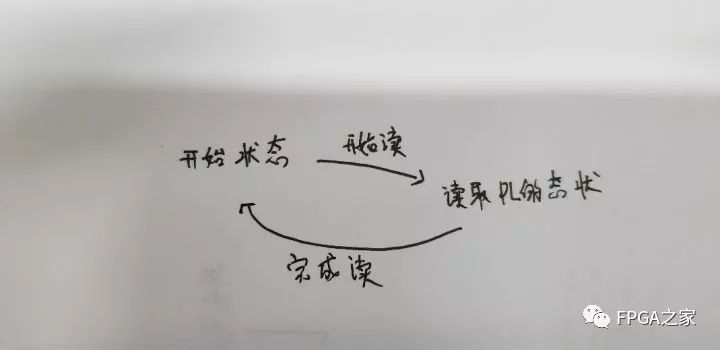 开始状态
开始读
读取PL的态状
完成读
FPGA之家